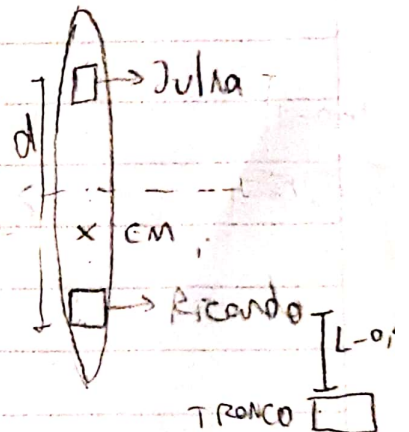 Julia
d
x CM
Ricardo
L-0,
TRONCO